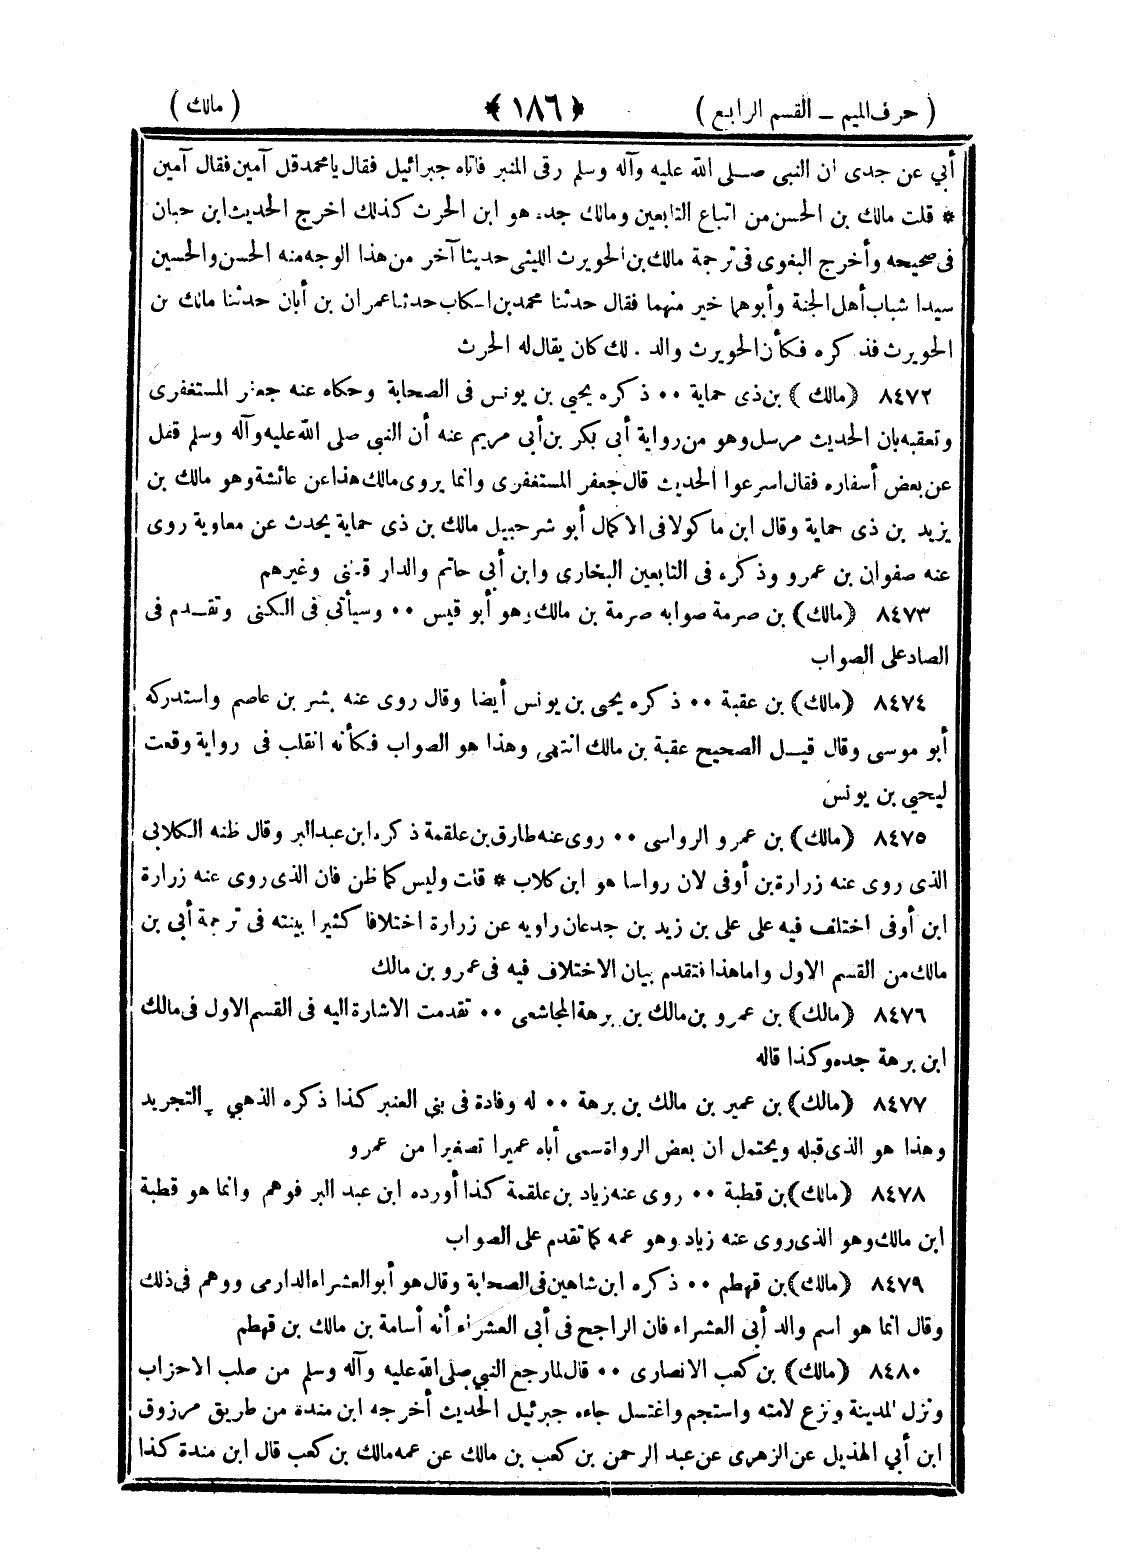 ( حرف الميم ــ القسم الرابع ) ﴿ ١٨٦ ﴾ ( مالك )
أبي عن جدى ان النبى صلى الله عليه وآله وسلم رقى المنبر فاتاه جبرائيل فقال يا محمد قل آمين فقال آمين
* قلت مالك بن الحسن من اتباع التابعين ومالك جده هو ابن الحرث كذلك اخرج الحديث ابن حبان
فى صحيحه وأخرج البغوى فى ترجمة مالك بن الحويرث الليثى حديثا آخر من هذا الوجه منه الحسن والحسين
سيدا شباب أهل الجنة وأبوهما خير منهما فقال حدثنا محمد بن اسكاب حدثنا عمران بن أبان حدثنا مالك بن
الحويرث فذكره فكأن الحويرث والد مالك كان يقال له الحرث
٨٤٧٢ ﴿مالك﴾ بن ذى حماية ٠٠ ذكره يحيى بن يونس فى الصحابة وحكاه عنه جعفر المستغفرى
وتعقبه بان الحديث مرسل وهو من رواية أبى بكر بن أبى مريم عنه أن النبى صلى الله عليه وآله وسلم قفل
عن بعض أسفاره فقال اسرعوا الحديث قال جعفر المستغفرى وانما يروى مالك هذا عن عائشة وهو مالك بن
يزيد بن ذى حماية وقال ابن ماكولا فى الاكمال أبو شرحبيل مالك بن ذى حماية يحدث عن معاوية روى
عنه صفوان بن عمرو وذكره فى التابعين البخارى وابن أبي حاتم والدار قطنى وغيرهم
٨٤٧٣ ﴿مالك﴾ بن صرمة صوابه صرمة بن مالك وهو أبو قيس ٠٠ وسيأتى فى الكنى وتقدم فى
الصاد على الصواب
٨٤٧٤ ﴿مالك﴾ بن عقبة ٠٠ ذكره يحيى بن يونس أيضا وقال روى عنه بشر بن عاصم واستدركه
أبو موسى وقال قيل الصحيح عقبة بن مالك انتهى وهذا هو الصواب فكأنه انقلب فى رواية وقعت
ليحيى بن يونس
٨٤٧٥ ﴿مالك﴾ بن عمرو الرواسى ٠٠ روى عنه طارق بن علقمة ذكره ابن عبد البر وقال ظنه الكلابى
الذى روى عنه زرارة بن أوفى لان رواسا هو ابن كلاب * قلت وليس كما ظن فان الذى روى عنه زرارة
ابن أوفى اختلف فيه على على بن زيد بن جدعان راويه عن زرارة اختلافا كثيرا بينته فى ترجمة أبي بن
مالك من القسم الاول واما هذا فتقدم بيان الاختلاف فيه فى عمرو بن مالك
٨٤٧٦ ﴿مالك﴾ بن عمرو بن مالك بن برهة المجاشعى ٠٠ تقدمت الاشارة اليه فى القسم الاول فى مالك
ابن برهة جده وكذا قاله
٨٤٧٧ ﴿مالك﴾ بن عمير بن مالك بن برهة ٠٠ له وفادة فى بنى العنبر كذا ذكره الذهبي التجريد
وهذا هو الذى قبله ويحتمل ان بعض الرواة سمى أباه عميرا تصغيرا من عمرو
٨٤٧٨ ﴿مالك﴾ بن قطبة ٠٠ روى عنه زياد بن علقمة كذا أورده ابن عبد البر فوهم وانما هو قطبة
ابن مالك وهو الذى روى عنه زياد وهو عمه كما تقدم على الصواب
٨٤٧٩ ﴿مالك﴾ بن قهطم ٠٠ ذكره ابن شاهين فى الصحابة وقال هو أبو العشراء الدارمى ووهم فى ذلك
وقال انما هو اسم والد أبى العشراء فان الراجح فى أبى العشراء أنه أسامة بن مالك بن قهطم
٨٤٨٠ ﴿مالك﴾ بن كعب الانصارى ٠٠ قال لما رجع النبي صلى الله عليه وآله وسلم من صلب الاحزاب
ونزل المدينة ونزع لامته واستجم واغتسل جاءه جبرئيل الحديث أخرجه ابن مندة من طريق مرزوق
ابن أبي الهذيل عن الزهرى عن عبد الرحمن بن كعب بن مالك عن عمه مالك بن كعب قال ابن مندة كذا